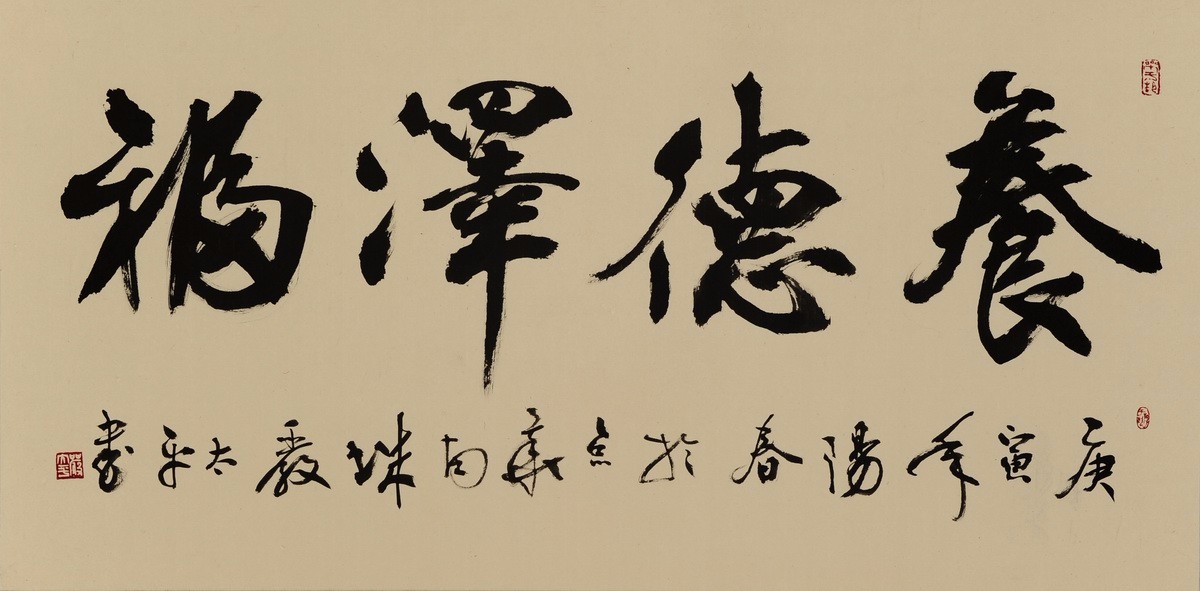 養德澤福
庚寅年陽春於京華南城嚴太平書